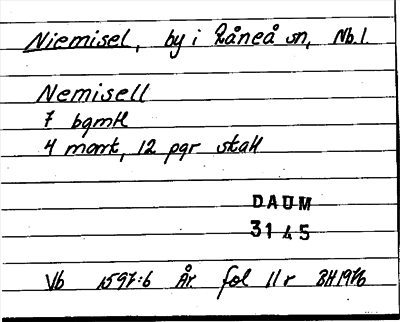 Niemisel, by i Råneå sn, Nb. l.
Nemisell
7 bgmtl
4 mant, 12 pgr skatt
DAUM
3145
Vb 1597:6 År fol 11r BH1976